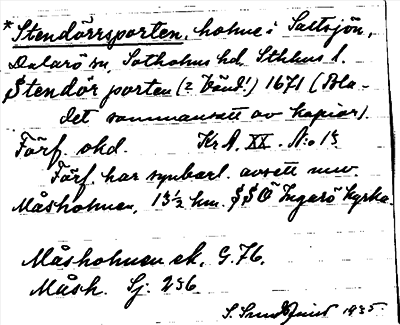 *Stendörrsporten, holme i Saltsjön,
Dalarö sn, Sotholms hd. Sthlms l.
Stendör porten (2 Vänd!) 1671 (Bla-
det sammansatt av kopior).
Förf. okd. Kr A. XX. N:o 15
Förf. har synbarl. avsett nuv.
Måsholmen, 13½ km. SSO Ingarö kyrka.
Måsholmen ek. G.76.
Måsh. Sj: 256
1935